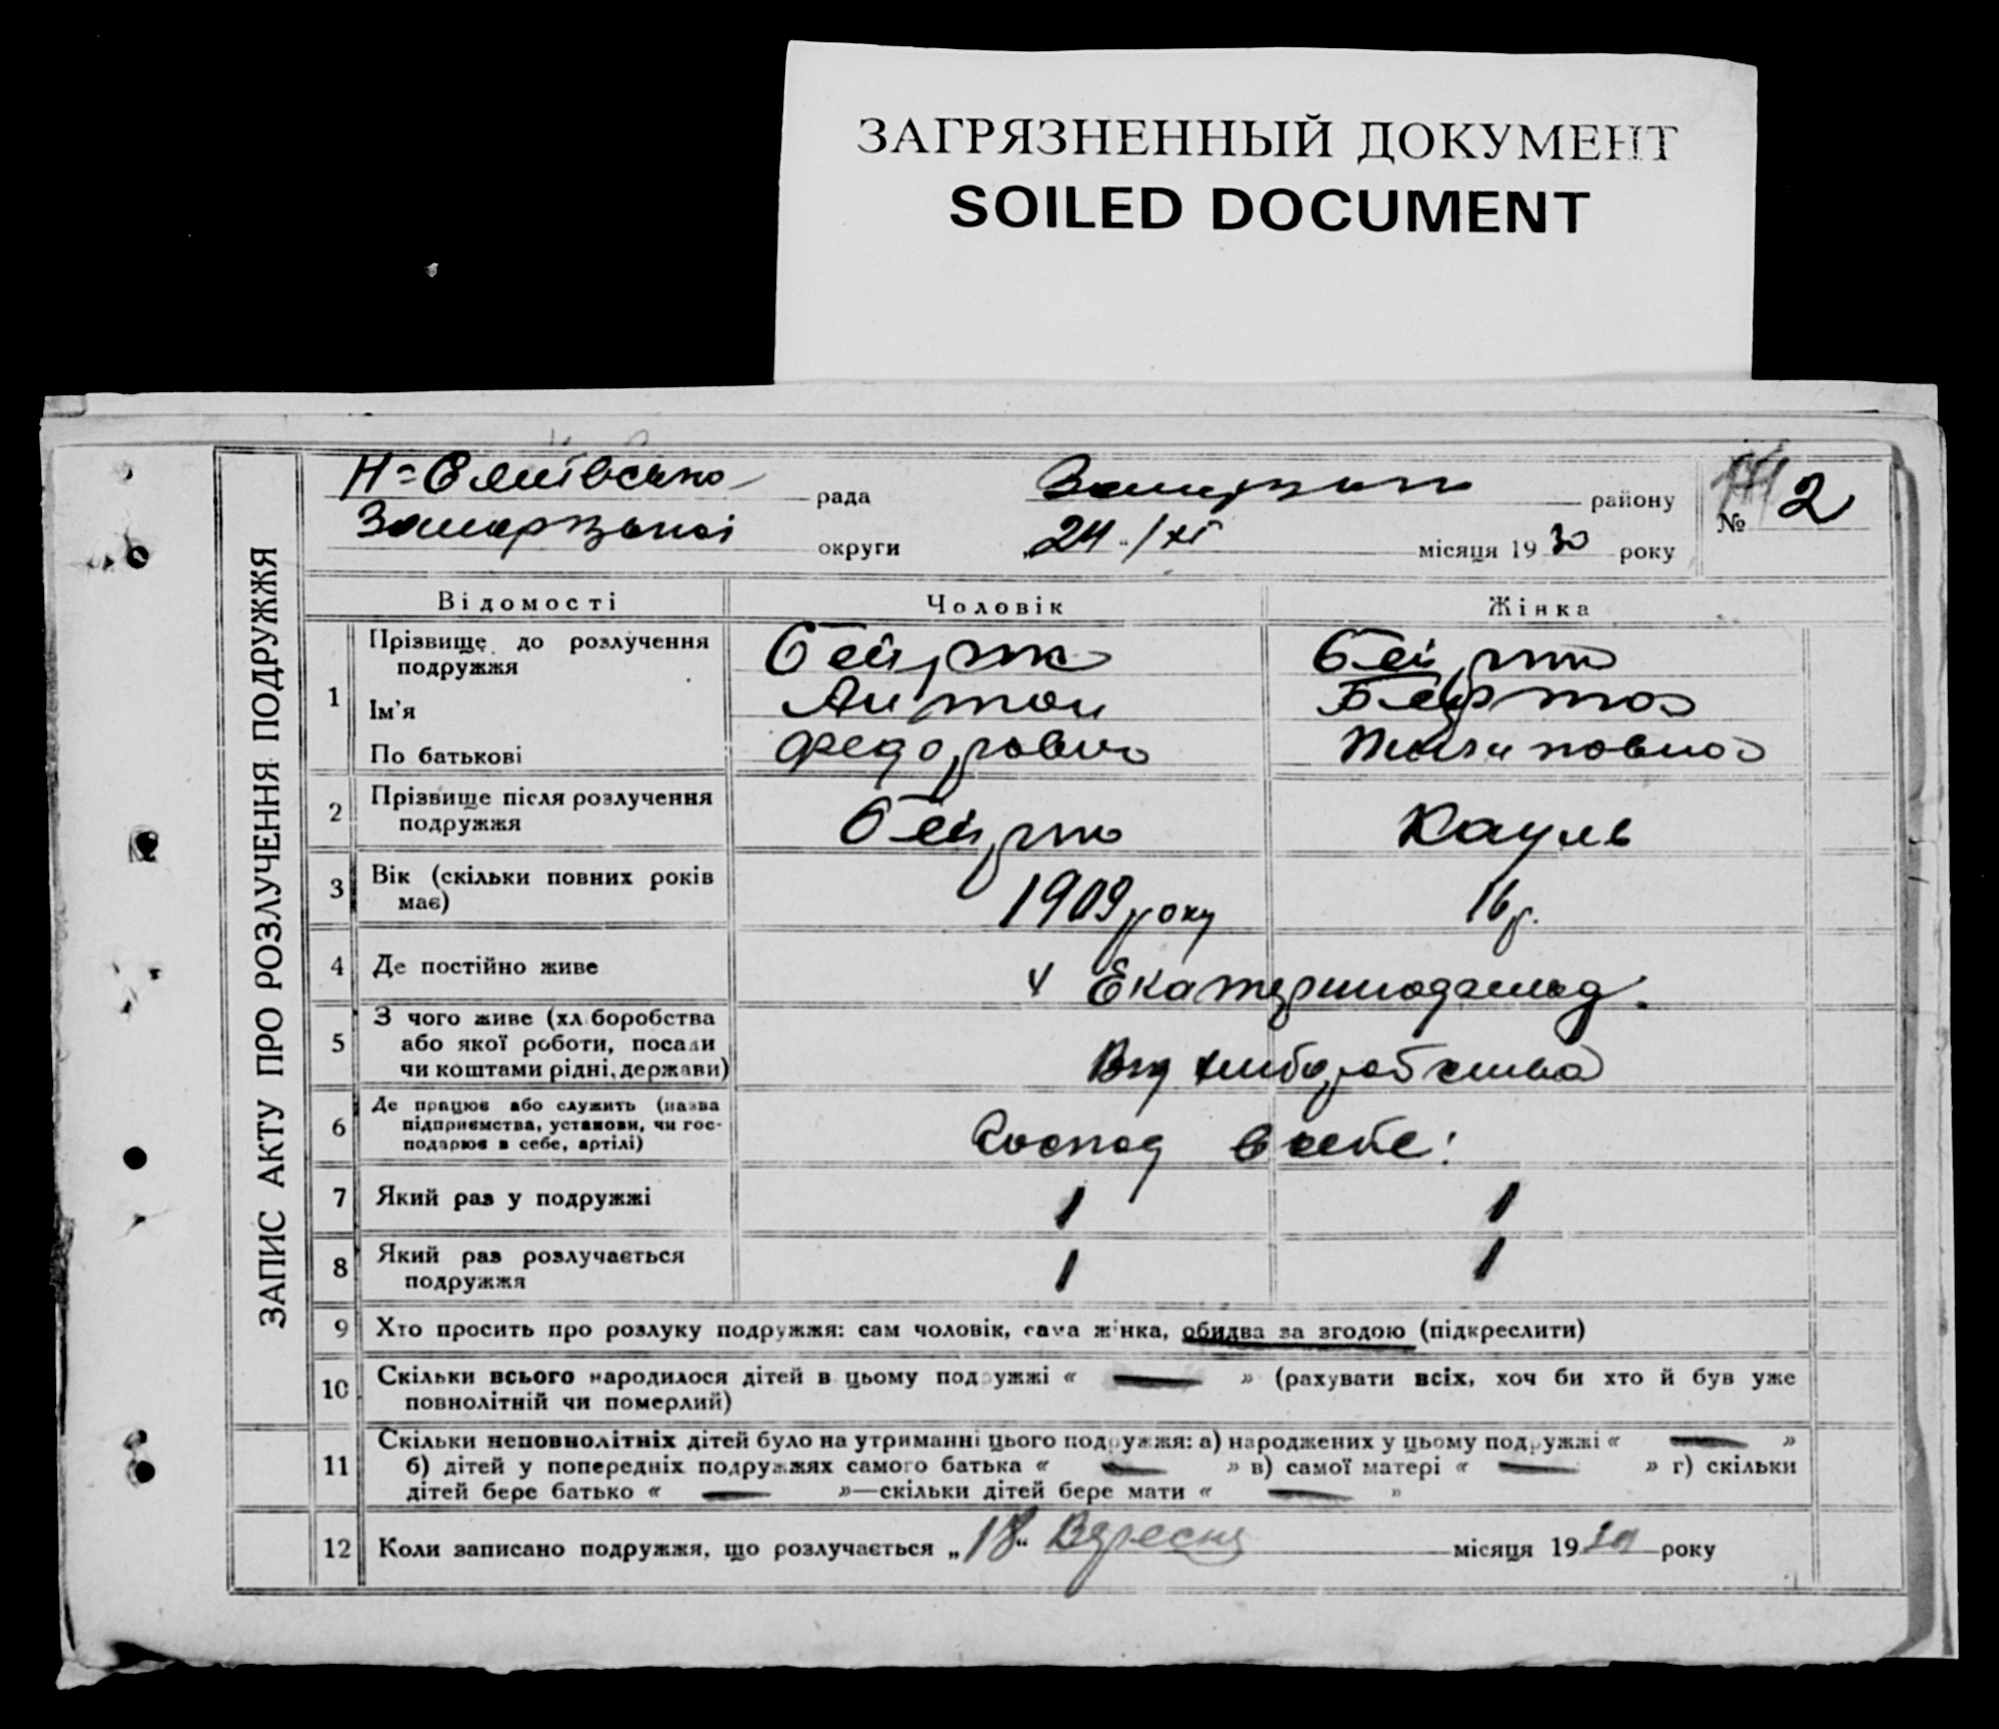 ЗАГРЯЗНЕННЫЙ ДОКУМЕНТ
SOILED DOCUMENT
ЗАПИС АКТУ ПРО РОЗЛУЧЕННЯ ПОДРУЖЖЯ
рада району № 2
округи „24“/XI місяця 1930 року
Відомості Чоловік Жінка
1 Прізвище до розлучення
подружжя
Ім'я Антон Берта
По батькові Федорович
2 Прізвище після розлучення
подружжя Кауль
3 Вік (скільки повних років
має) 1909 року 16 р.
4 Де постійно живе
5 З чого живе (хл боробства
або якої роботи, посади
чи коштами рідні, держави)
6 Де працює або служить (назва
підприємства, установи, чи гос-
подарює в себе, артілі) Господ в себе
7 Який раз у подружжі 1 1
8 Який раз розлучається
подружжя 1 1
9 Хто просить про розлуку подружжя: сам чоловік, сама жінка, обидва за згодою (підкреслити)
10 Скільки всього народилося дітей в цьому подружжі « — » (рахувати всіх, хоч би хто й був уже
повнолітній чи померлий)
11 Скільки неповнолітніх дітей було на утриманні цього подружжя: а) народжених у цьому подружжі « — »
б) дітей у попередніх подружжях самого батька « — » в) самої матері « — » г) скільки
дітей бере батько « — »—скільки дітей бере мати « — »
12 Коли записано подружжя, що розлучається „18“ Вересня місяця 19 року